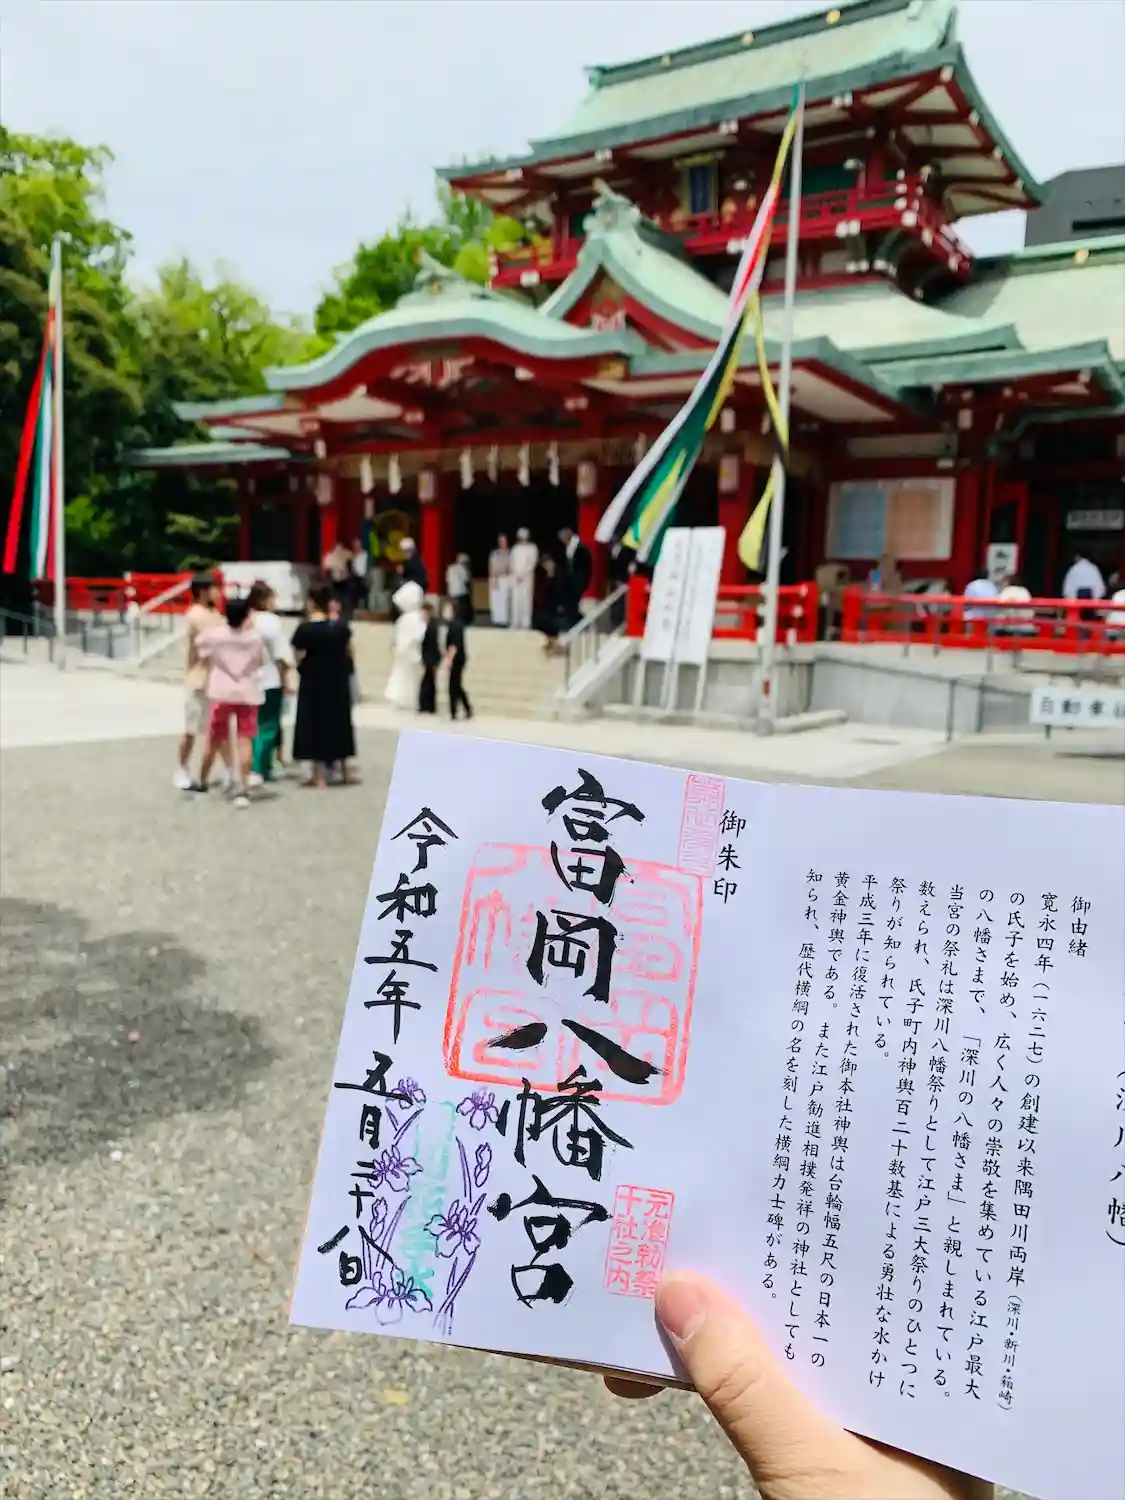 御由緒
寛永四年(一六二七)の創建以来隅田川両岸(深川・新川・箱崎)
の氏子を始め、広く人々の崇敬を集めている江戸最大
の八幡さまで、「深川の八幡さま」と親しまれている。
当宮の祭礼は深川八幡祭りとして江戸三大祭りのひとつに
数えられ、氏子町内神輿百二十数基による勇壮な水かけ
祭りが知られている。
平成三年に復活された御本社神輿は台輪幅五尺の日本一の
黄金神輿である。また江戸勧進相撲発祥の神社としても
知られ、歴代横綱の名を刻した横綱力士碑がある。
御朱印
富岡八幡宮
元准勅祭
十社之内
令和五年
五月二十八日
自動車